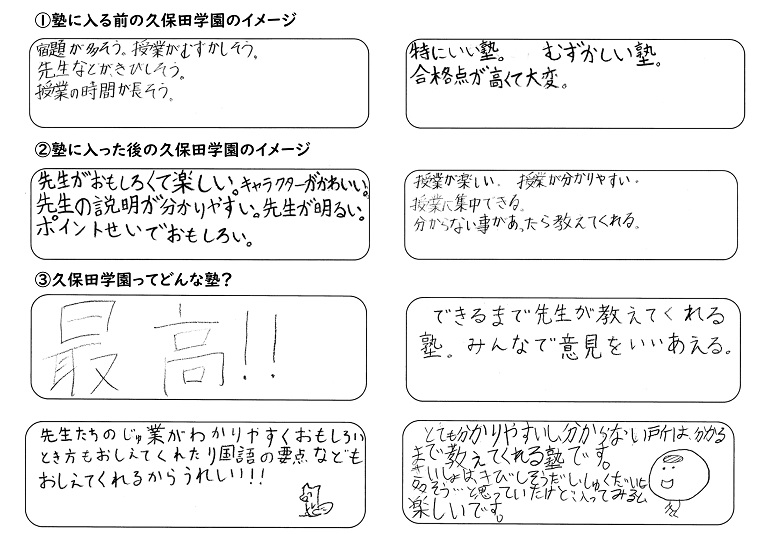 ①塾に入る前の久保田学園のイメージ
宿題が多そう。授業がむずかしそう。
先生などがきびしそう。
授業の時間が長そう。
特にいい塾。 むずかしい塾。
合格点が高くて大変。
②塾に入った後の久保田学園のイメージ
先生がおもしろくて楽しい。キャラクターがかわいい。
先生の説明が分かりやすい。先生が明るい。
ポイントせいでおもしろい。
授業が楽しい、授業が分かりやすい。
授業に集中できる。
分からない事があったら教えてくれる。
③久保田学園ってどんな塾？
最高!!
できるまで先生が教えてくれる
塾。みんなで意見をいいあえる。
先生たちのじゅ業がわかりやすくおもしろい
とき方もおしえてくれたり国語の要点なども
おしえてくれるからうれしい!!!
とても分かりやすいし、分からない所は、分かる
まで教えてくれる塾です。
さいしょは、きびしそうだし、しゅくだいも
多そう…と思っていたけど、入ってみると
楽しいです。